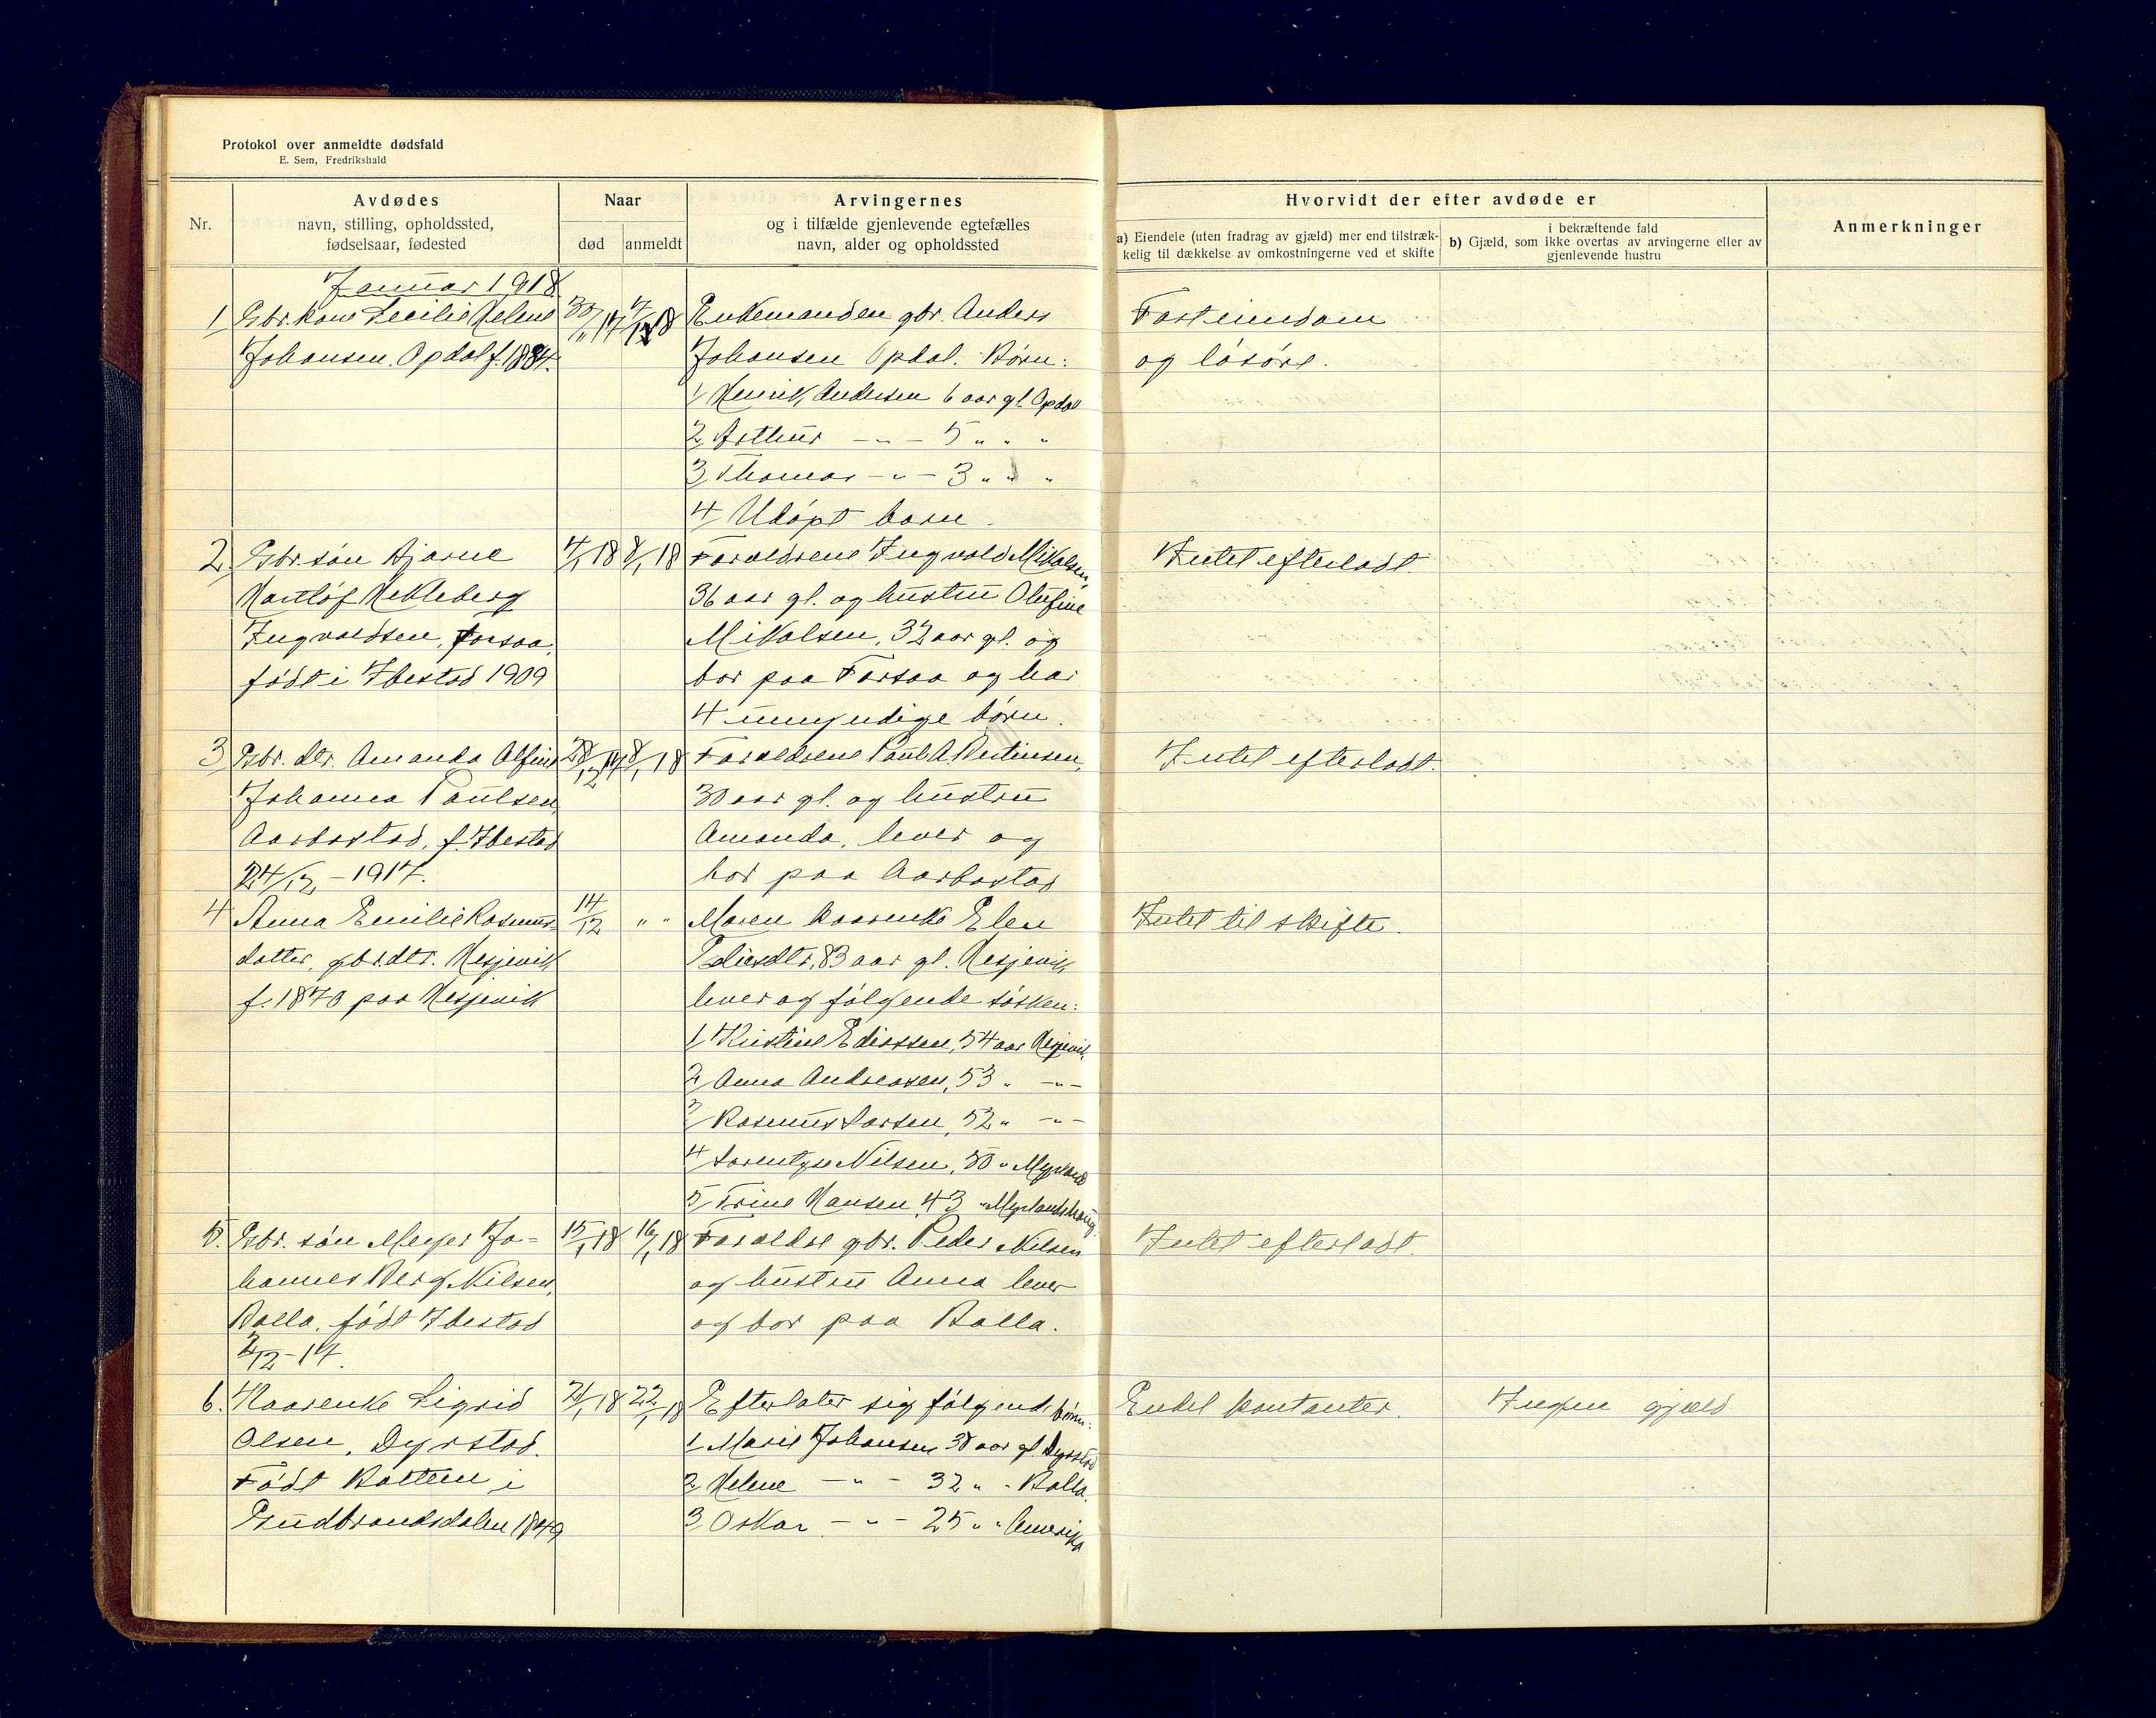 Protokol over anmeldte dødsfald
E. Sem, Fredrikshald
Nr.
Avdødes
navn, stilling, opholdssted,
fødselsaar, fødested
Naar
død
anmeldt
Arvingernes
og i tilfælde gjenlevende egtefælles
navn, alder og opholdssted
Hvorvidt der efter avdøde er
a) Eiendele (uten fradrag av gjæld) mer end tilstræk-
kelig til dækkelse av omkostningerne ved et skifte
i bekræftende fald
b) Gjæld, som ikke overtas av arvingerne eller av
gjenlevende hustru
Anmerkninger
Januar 1918
1/ Gbr. kone Cecilie Helene
Johansen. Opdal f. 1884.
30/11 17
4/1 18
Enkemanden gbr. Anders
Johansen Opdal. Børn:
1/ Henrik Andersen 6 aar gl. Opdal
2 Arthur -"- 5 " " "
3/ Thomas -"- 3 " " "
4/ Udøpt barn.
Fasteiendom
og løsøre.
2. Gbr. søn Bjarne
Hartløf Hekleberg
Ingvaldsen, Forsaa,
født i Ibestad 1909
4/1 18
8/1 18
Forældrene Ingvald Mikalsen,
36 aar gl. og hustru Olufine
Mikalsen, 32 aar gl. og
bor paa Forsaa og har
4 umyndige børn.
Intet efterladt.
3/ Gbr. dtr. Amanda Alfine
Johanna Paulsen,
Aarbostad, f. Ibestad
24/12 - 1917.
28/12 17
8/1 18
Forældrene Paul A. Kristinsen,
30 aar gl. og hustru
Amanda, lever og
bor paa Aarbostad
Intet efterladt.
4 Anna Emilie Rasmus-
datter, gbr.dtr. Hesjevik
f. 1870 paa Hesjevik
14/12
" "
Moren kaarenke Elen
Ediasdtr, 83 aar gl. Hesjevik
lever og følgende søsken:
1/ Kristine Ediassen, 54 aar Hesjevik
2/ Anna Andreasen, 53 " -"-
3/ Rasmus Larsen, 52 " -"-
4/ Lorentse Nilsen, 50 " Myrland
5/ Trine Hansen 43 " Myrlandshaug.
Intet til skifte.
5. Gbr. søn Meyer Jo=
hannes Berg Nilsen,
Rolla, født Ibestad
2/12 - 17.
15/1 18
16/1 18
Forældre gbr. Peder Nilsen
og hustru Anna lever
og bor paa Rolla.
Intet efterladt.
6. Kaarenke Sigrid
Olsen, Dyrstad.
Født Botten i
Gudbrandsdalen 1849
21/1 18
22/1 18
Efterlater sig følgende børn:
1 Marie Johansen 38 aar gl. Dyrstad
2 Helene -"- 32 " " Rolla.
3 Oskar -"- 25 " " Amerika
Endel kontanter.
Ingen gjæld